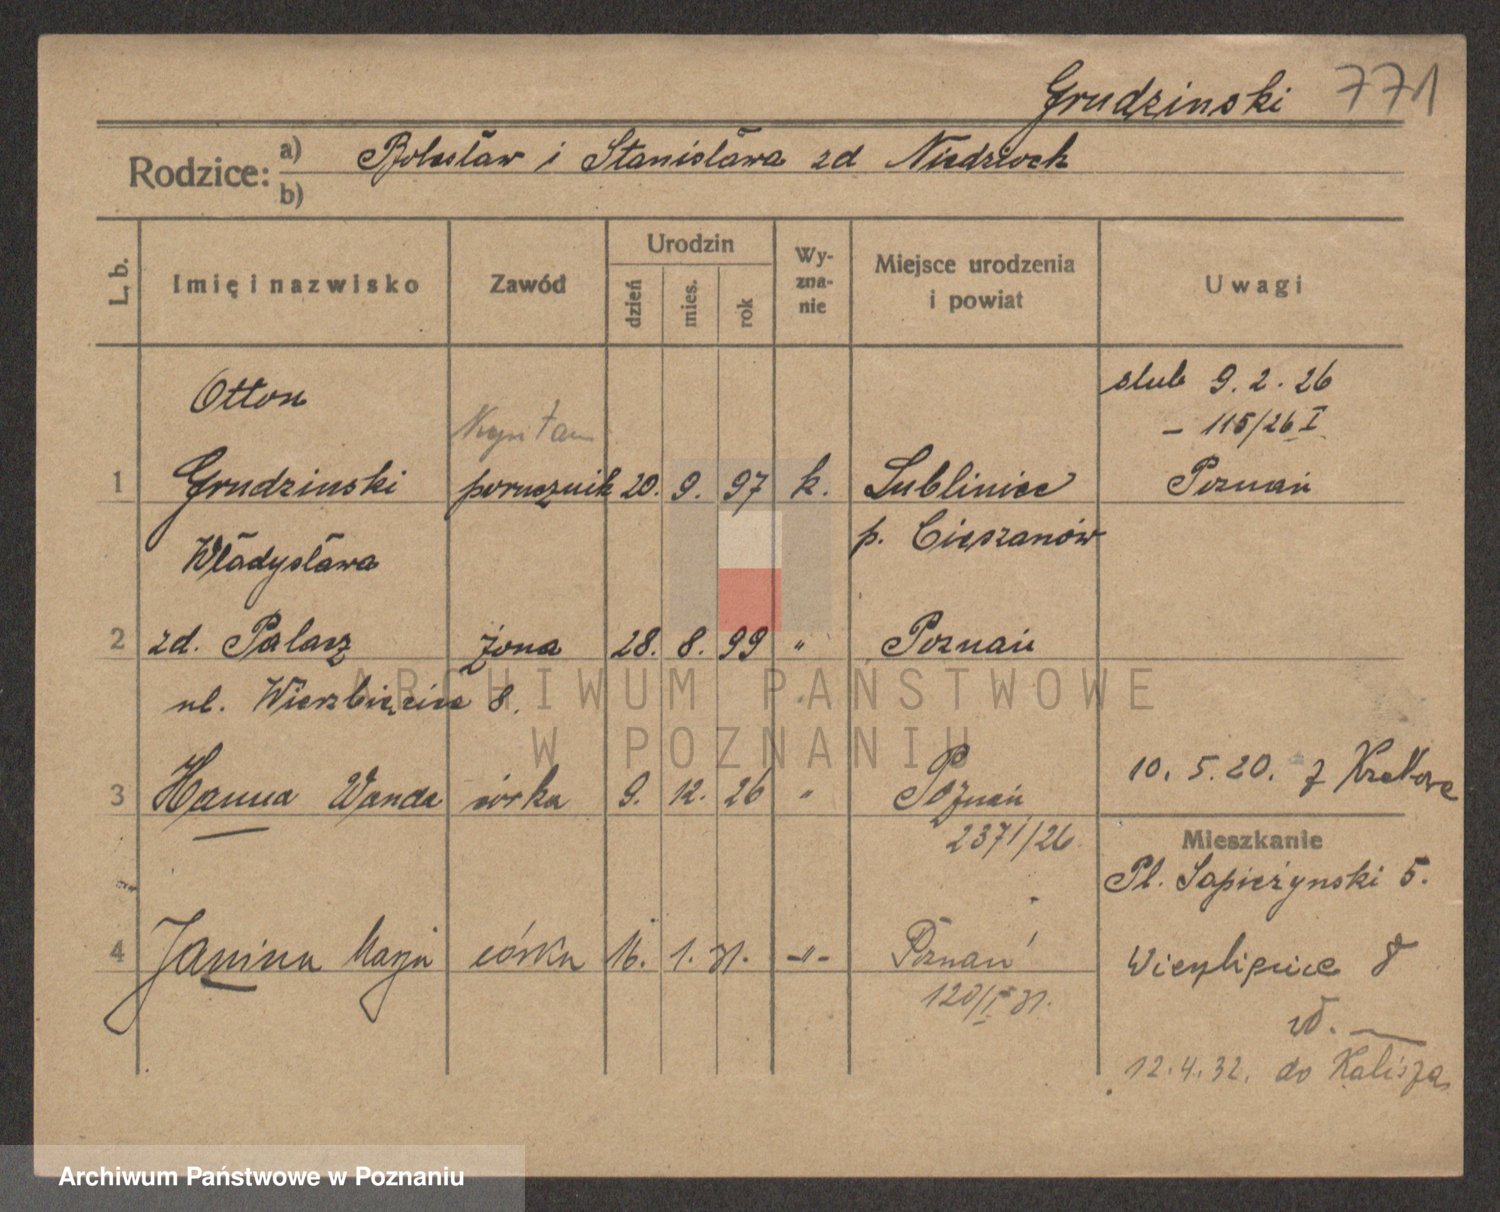 Grudzinski 771
Rodzice: a) Bolesław i Stanisława zd Niedzwok
b)
L. b. Imię i nazwisko Zawód Urodzin dzień mies. rok Wy-zna-nie Miejsce urodzenia i powiat Uwagi
Otton ślub 9. 2. 26
Kapitan – 115/26 I
1 Grudzinski porucznik 20. 9. 97 k. Lubliniec Poznań
Władysława p. Cieszanów
2 zd. Palacz żona 28. 8. 99 " Poznań
ul. Wierzbięcice 8.
3 Hanna Wanda córka 9. 12. 26 " Poznań 10. 5. 20. z Krakowa
2371/26. Mieszkanie
Pl. Sapieżynski 5.
4 Janina Marja córka 16. 1. 31. –"– Poznań Wierzbięcice 8
120/I 31. wł.
12.4.32. do Kalisza
ARCHIWUM PAŃSTWOWE
W POZNANIU
Archiwum Państwowe w Poznaniu